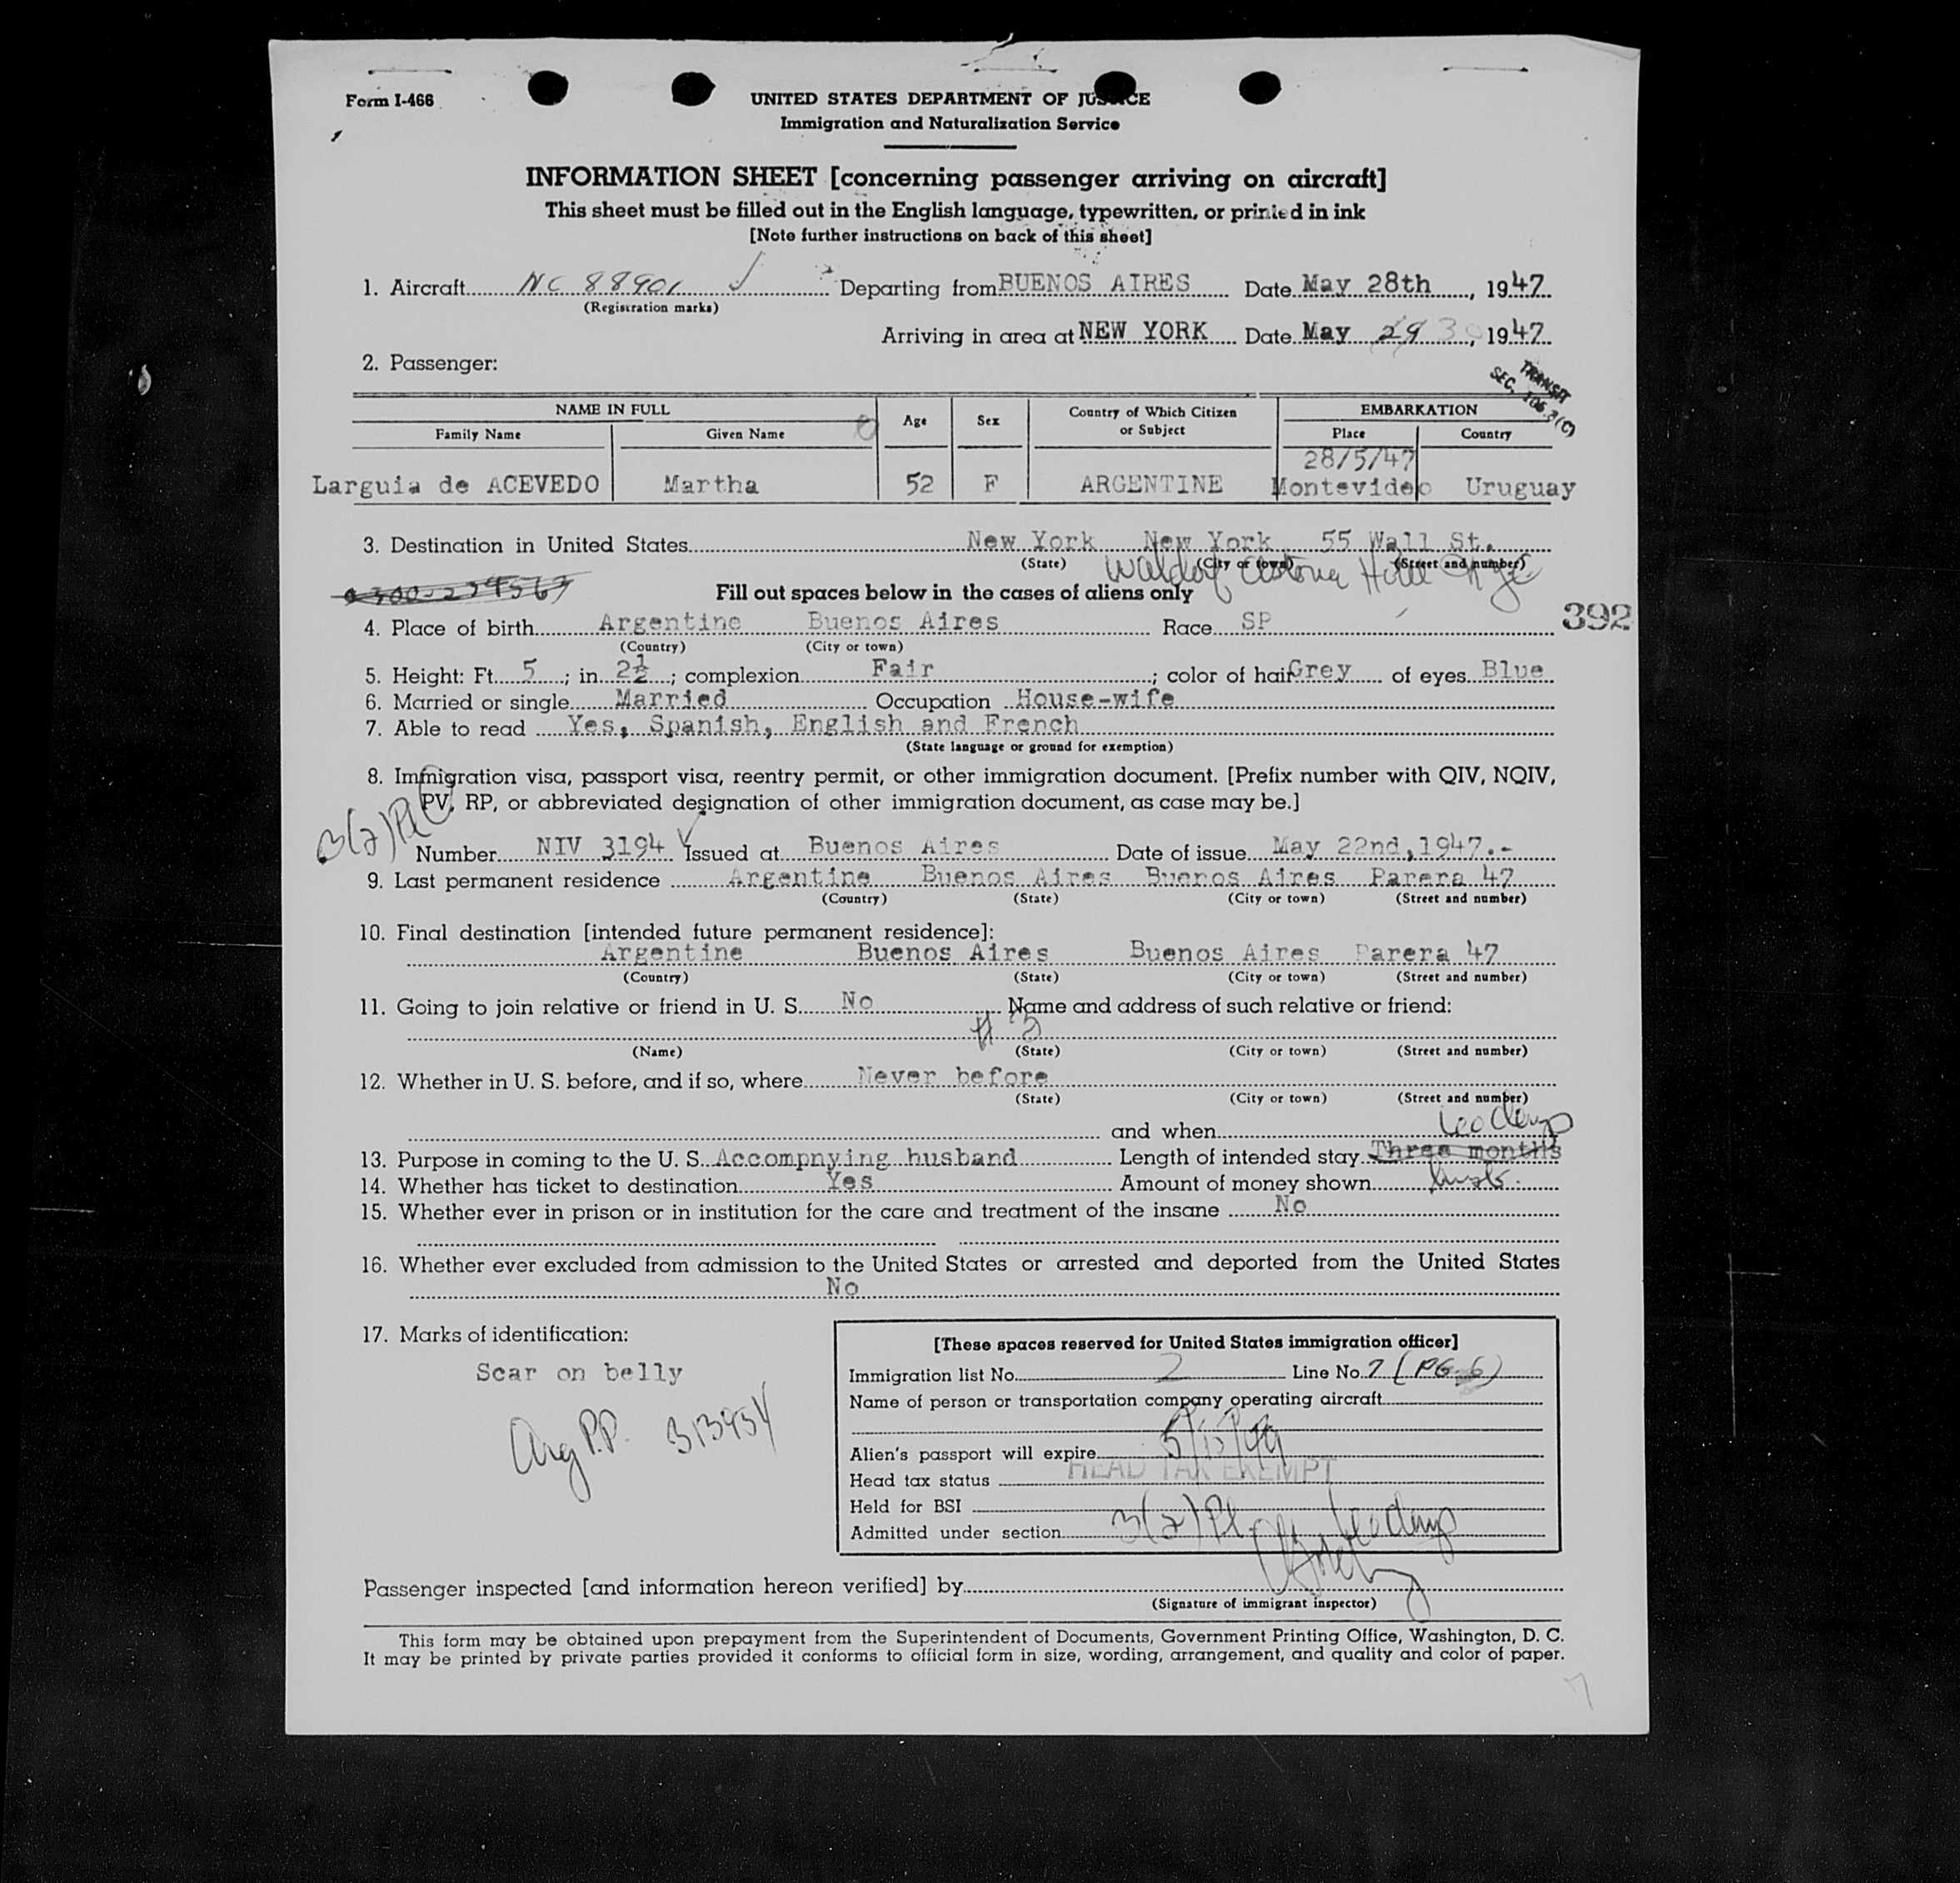 Form I-466
UNITED STATES DEPARTMENT OF JUSTICE
Immigration and Naturalization Service
INFORMATION SHEET [concerning passenger arriving on aircraft]
This sheet must be filled out in the English language, typewritten, or printed in ink
[Note further instructions on back of this sheet]
1. Aircraft NC 88901 Departing from BUENOS AIRES Date May 28th, 1947
(Registration marks)
Arriving in area at NEW YORK Date May 29 30, 1947
2. Passenger:
TRANSIT
SEC. 106.3(C)
NAME IN FULL Age Sex Country of Which Citizen or Subject EMBARKATION
Family Name Given Name Place Country
28/5/47
Larguia de ACEVEDO Martha 52 F ARGENTINE Montevideo Uruguay
3. Destination in United States New York New York 55 Wall St.
(State) (City or town) (Street and number)
Waldorf Astoria Hotel NYC
Fill out spaces below in the cases of aliens only
392
4. Place of birth Argentine Buenos Aires Race SP
(Country) (City or town)
5. Height: Ft. 5; in 2½; complexion Fair; color of hair Grey of eyes Blue
6. Married or single Married Occupation House-wife
7. Able to read Yes, Spanish, English and French
(State language or ground for exemption)
8. Immigration visa, passport visa, reentry permit, or other immigration document. [Prefix number with QIV, NQIV,
PV, RP, or abbreviated designation of other immigration document, as case may be.]
3(2)Pl
Number NIV 3194 Issued at Buenos Aires Date of issue May 22nd,1947.-
9. Last permanent residence Argentine Buenos Aires Buenos Aires Parera 47
(Country) (State) (City or town) (Street and number)
10. Final destination [intended future permanent residence]:
Argentine Buenos Aires Buenos Aires Parera 47
(Country) (State) (City or town) (Street and number)
11. Going to join relative or friend in U. S. No Name and address of such relative or friend:
(Name) (State) (City or town) (Street and number)
12. Whether in U. S. before, and if so, where Never before
(State) (City or town) (Street and number)
and when
60 days
13. Purpose in coming to the U. S. Accompnying husband Length of intended stay Three months
14. Whether has ticket to destination Yes Amount of money shown
15. Whether ever in prison or in institution for the care and treatment of the insane No
16. Whether ever excluded from admission to the United States or arrested and deported from the United States
No
17. Marks of identification:
Scar on belly
Arg P.P. 313934
[These spaces reserved for United States immigration officer]
Immigration list No. 2 Line No. 7 (PG. 6)
Name of person or transportation company operating aircraft
Alien's passport will expire 5/13/49
Head tax status HEAD TAX EXEMPT
Held for BSI
Admitted under section 3(2)Pl 60 days
Passenger inspected [and information hereon verified] by
(Signature of immigrant inspector)
This form may be obtained upon prepayment from the Superintendent of Documents, Government Printing Office, Washington, D. C.
It may be printed by private parties provided it conforms to official form in size, wording, arrangement, and quality and color of paper.
7